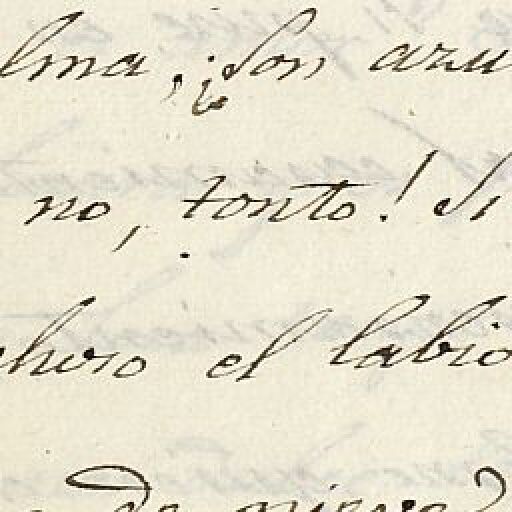 lma, ¿Son azu
no, tonto! Si
chero el labio
de nieve?